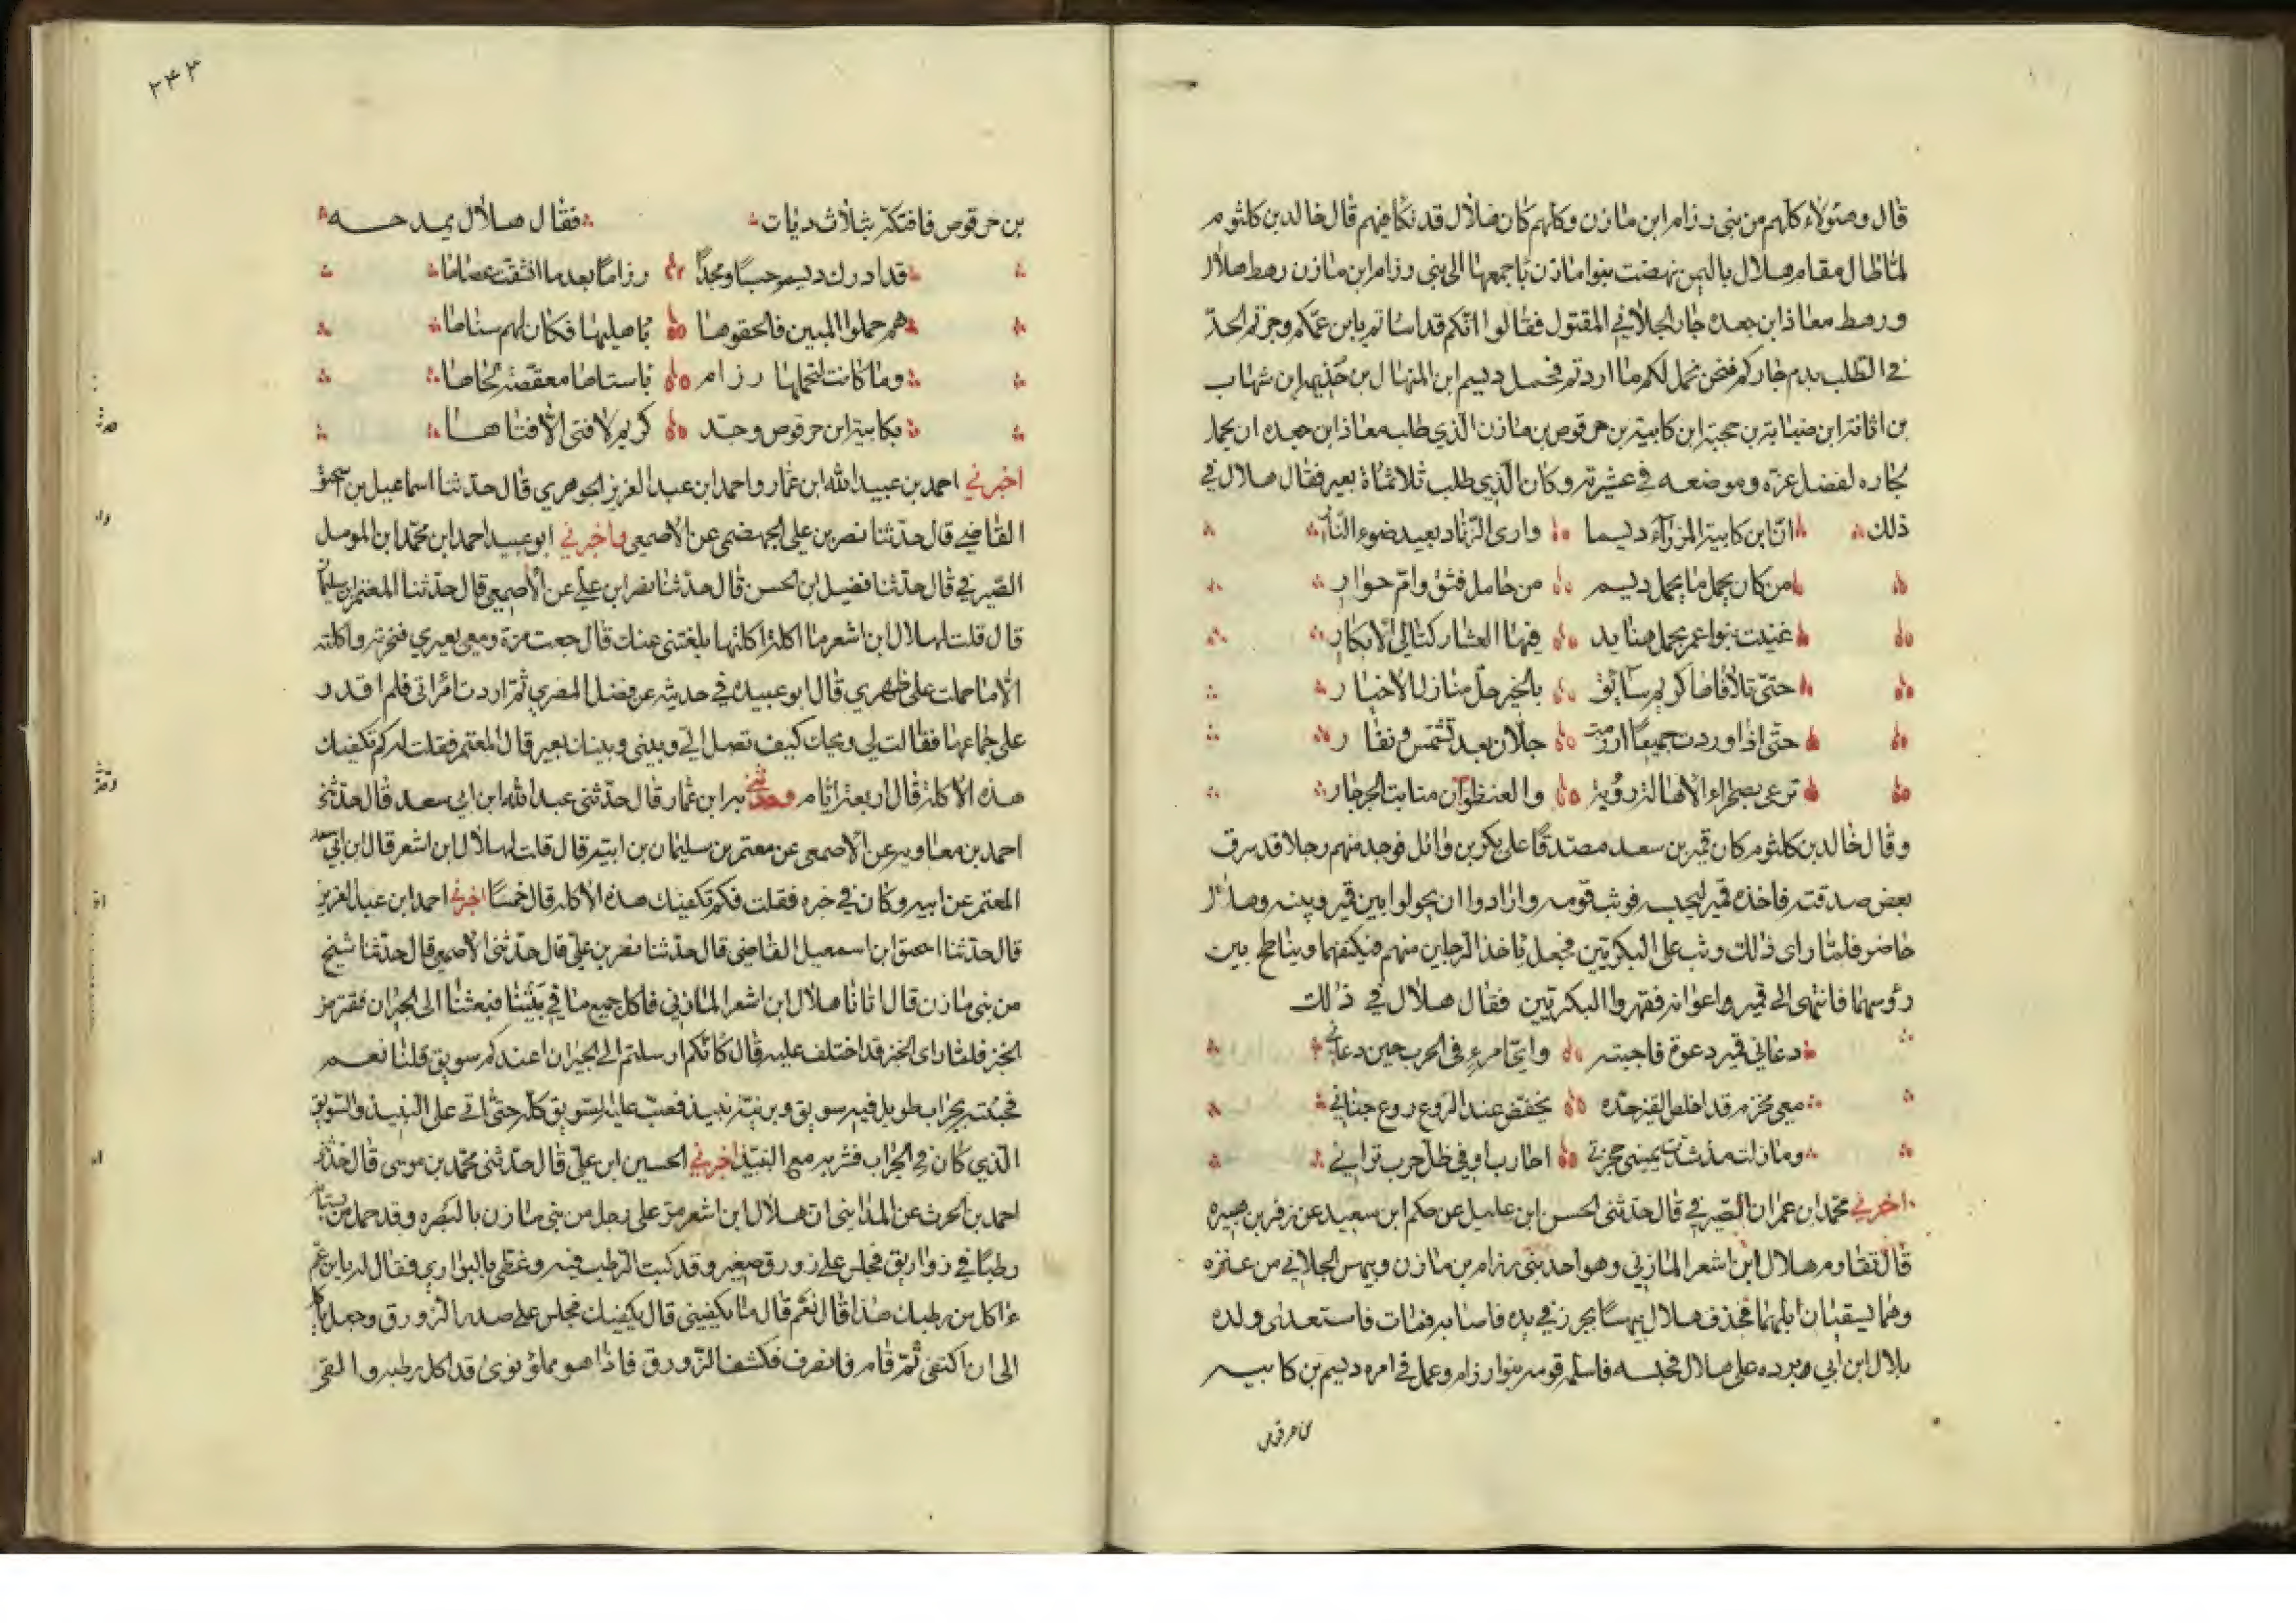 قال وهؤلاء كلهم من بنى رزام ابن مازن وكلهم كان هلال قد نكا فيهم قال خالد بن كلثوم
لما طال مقام هلال باليمن نهضت بنوا مازن باجمعها الى بنى رزام ابن مازن رهط هلال
ورهط معاذ ابن جعده جار الجلاني المقتول فقالوا انكم قد اساتم بابن عمكم وجزتم الحد
في الطلب بدم جاركم فنحن نحمل لكم ما اردتم فحمل ديسم ابن المنهال بن خذيمه ابن شهاب
بن اثاثة ابن ضبابة بن حجبة ابن كابية بن حرقوص بن مازن الذي طلبه معاذ ابن جعده ان يحمل
لجاره لفضل عزه وموضعه في عشيرته وكان الذي طلب ثلاثماة بعير فقال هلال في
ذلك ان ابن كابية المرزاء ديسما وارى الزناد بعيد ضوء النار
من كان يحمل ما يحمل ديسم من حامل فتق وام حوار
عنيت بنوا عمر بحمل هنايد فيها العشار كتالى الابكار
حتى تلافاها كريم سابق بالخير حل منازل الاخيار
حتى اذا وردت جميعا ارزمت جلان بعد تشمس ونفار
ترعى بصحراء الاهالة رؤبة والعنظوان منابت الجرجار
وقال خالد بن كلثوم كان قمير بن سعد مصدقا على بكر بن وائل فوجد منهم رجلا قد سرق
بعض صدقته فاخذه قمير ليحبسه فوثب قومه وارادوا ان يحولوا بين قمير وبينه وهلال
حاضر فلما راى ذلك وثب على البكريين فجعل ياخذ الرجلين منهم فيكنفهما ويناطح بين
رؤسهما فانتهى الى قمير واعوانه فقهروا البكريين فقال هلال في ذلك
دعاني قمير دعوة فاجبته واي امرء في الحرب حين دعاني
معي مخزم قد اخلص القين حده يخفض عند الروع روع جناني
وما زلت مذ شدت يميني حجزتي احارب او في ظل حرب تراني
اخبرني محمد ابن عمران الصيرفي قال حدثنى الحسن ابن عليل عن حكم ابن سعيد عن زفر بن هبيره
قال تقاوم هلال ابن اشعر المازني وهو احد بنى رزام بن مازن وبهيس الجلاني من عنزه
وهما يسقيان ابلهما فحذف هلال بهيسا بمحرز في يده فاصابه فمات فاستعدى ولده
بلال ابن ابي وبرده على هلال فحبسه فاسلمه قومه بنوا رزام وعمل في امره ديسم بن كابيه
بن حرقوص
٢٤٣
بن حرقوص فافتكه بثلاث ديات فقال هلال يمدحه
قد ادرك ديسم حسبا ومجدا رزاما بعد ما انشقت عصاها
هم حملوا المبين فالحقوها باهليها فكان لهم سناها
وما كانت لتحملها رزام باستاها معقصة لحاها
بكابية ابن حرقوص وجد كريم لا فتى الا فتاها
اخبرني احمد بن عبيد الله ابن عمار واحمد ابن عبد العزيز الجوهري قال حدثنا اسماعيل بن اسحق
القاضي قال حدثنا نصر بن على الجهضمى عن الاصمعي واخبرني ابو عبيد احمد ابن محمد ابن المومل
الصيرفي قال حدثنا فضيل ابن الحسن قال حدثنا نصر ابن علي عن الاصمعي قال حدثنا المعتمر ابن سليمان
قال قلت لهلال ابن اشعر ما اكلة اكلتها بلغتنى عنك قال جعت مرة ومعى بعيري فنحرته واكلته
الا ما حملت على ظهري قال ابو عبيده في حديثه عن فضل المضري ثم اردت امراتى فلم اقدر
على جماعها فقالت لي ويحك كيف تصل الي وبينى وبينك بعير قال المعتمر فقلت له كم تكفيك
هذه الاكلة قال اربعة ايام وحدثني به ابن عمار قال حدثنى عبد الله ابن ابي سعد قال حدثنى
احمد بن معاويه عن الاصمعى عن معتمر بن سليمان بن ابيه قال قلت لهلال ابن اشعر قال ابن ابي سعد
المعتمر عن ابيه وكان في خبره فقلت فكم تكفيك هذه الاكله قال خمسا اخبرني احمد ابن عبد العزيز
قال حدثنا اسحق ابن اسمعيل القاضى قال حدثنا نصر بن علي قال حدثنى الاصمعى قال حدثنا شيخ
من بنى مازن قال اتانا هلال ابن اشعر المازني فاكل جميع ما في بيتنا فبعثنا الى الجيران نقترض
الخبز فلما راى الخبز قد اختلف عليه قال كانكم ارسلتم الى الجيران اعندكم سويق قلنا نعم
فجئته بجراب طويل فيه سويق وبرنية نبيذ فصب عليه السويق كله حتى اتى على النبيذ والسويق
الذي كان في الجراب فشربه مع النبيذ اخبرني الحسين ابن علي قال حدثنى محمد بن موسى قال حدثنى
احمد بن الحرث عن المداينى ان هلال ابن اشعر مر على رجل من بنى مازن بالبصره وقد حمل من بستانه
رطبا في زواريق فجلس على زورق صغير وقد كبت الرطب فيه وغطى بالبواري فقال له يابن عم
ءاكل من رطبك هذا قال نعم قال ما يكفينى قال يكفيك فجلس على صدر الزورق وجعل ياكل
الى ان اكتفى ثم قام فانصرف فكشف الزورق فاذا هو مملؤ نوى قد اكل رطبه والقى